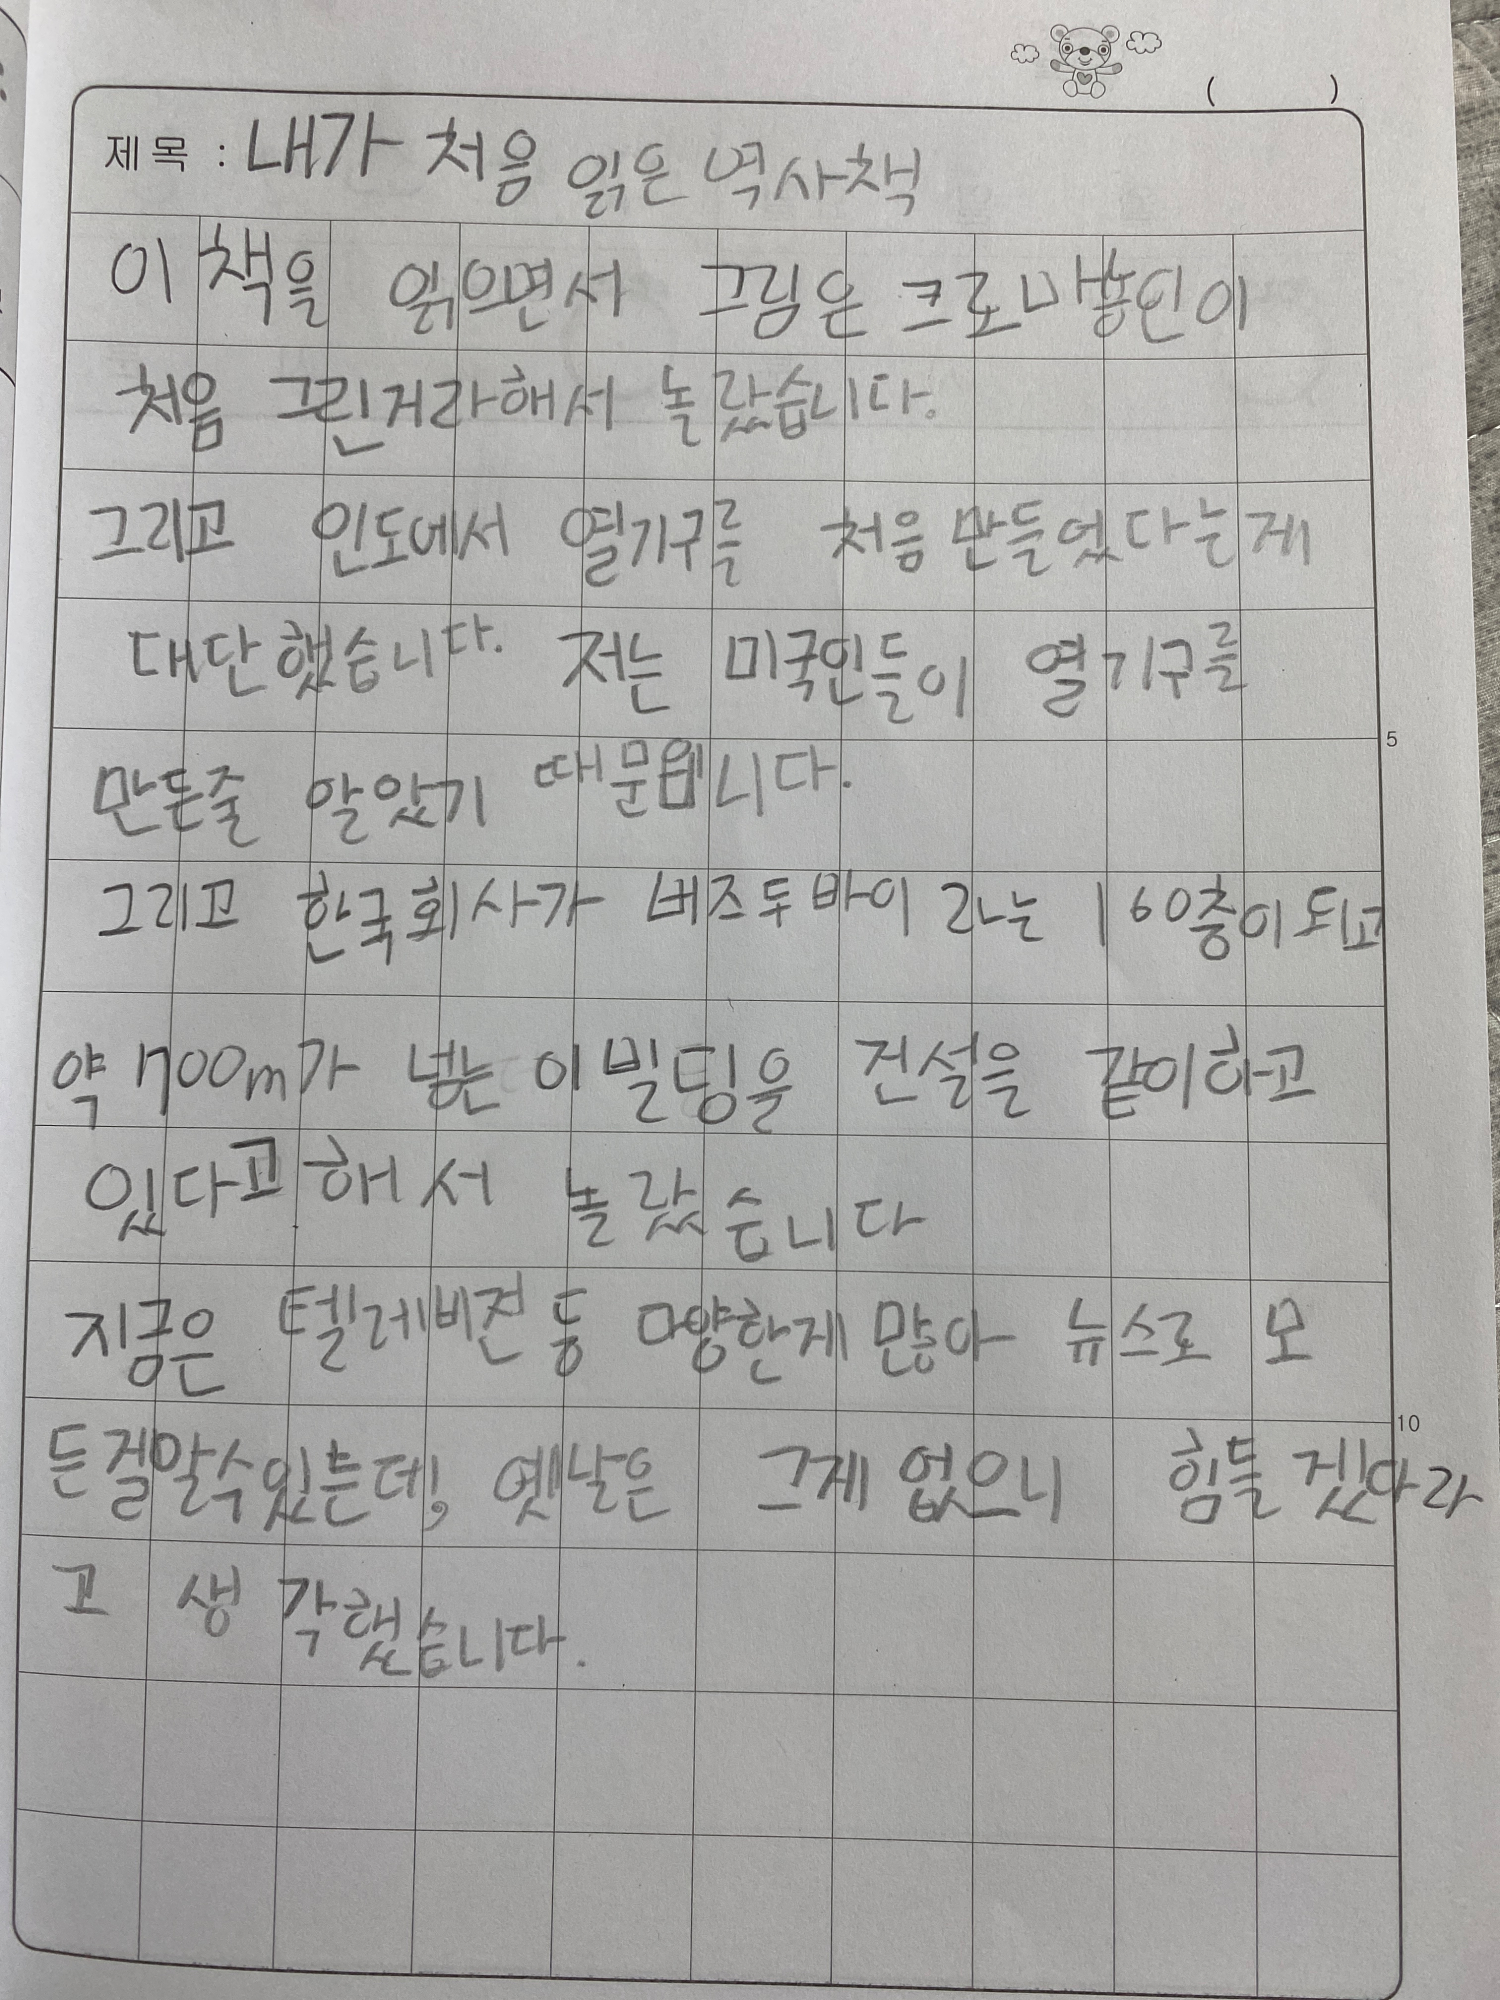 ( )
제목 : 내가 처음 읽은 역사책
이 책을 읽으면서 그림은 크로마뇽인이
처음 그린거라해서 놀랐습니다.
그리고 인도에서 열기구를 처음 만들었다는게
대단했습니다. 저는 미국인들이 열기구를
5
만든줄 알았기 때문입니다.
그리고 한국회사가 버즈두바이라는 160층이되고
약 700m가 넘는 이 빌딩을 건설을 같이하고
있다고 해서 놀랐습니다
지금은 텔레비젼 등 다양한게 많아 뉴스로 모
10
든걸알수있는데, 옛날은 그게 없으니 힘들겠다라
고 생각했습니다.